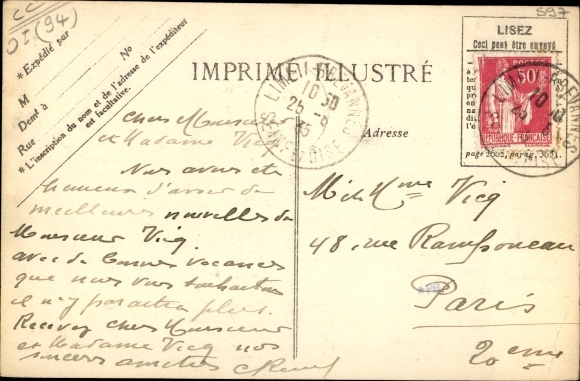 CC
DI (94)
597
* Expédié par
M
Demt à
Rue
No
* L'inscription du nom et de l'adresse de l'expéditeur
est facultative.
IMPRIMÉ ILLUSTRÉ
LISEZ
Ceci peut être envoyé
POSTES
50c
REPUBLIQUE FRANÇAISE
LIMEIL-BREVANNES
10 30
25 -8
35
SEINE-ET-OISE
Adresse
Cher Monsieur
et Madame Vicq
Nous avons eu
honneur d'avoir de
meilleures nouvelles de
Monsieur Vicq.
avec de bonnes vacances
que nous vous souhaitons
il n'y paraîtra plus.
Recevez cher Monsieur
et Madame Vicq nos
sincères amitiés
M. & Mme Vicq
48, rue Ramponeau
Paris
20eme